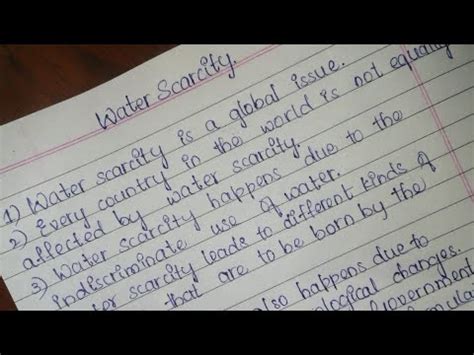 Water Scarcity.
1) Water scarcity is a global issue.
2) Every country in the world is not equally
affected by water scarcity.
3) Water scarcity happens due to the
indiscriminate use of water.
scarcity leads to different kinds of
that are to be born by the
also happens due to
ological changes.
Government